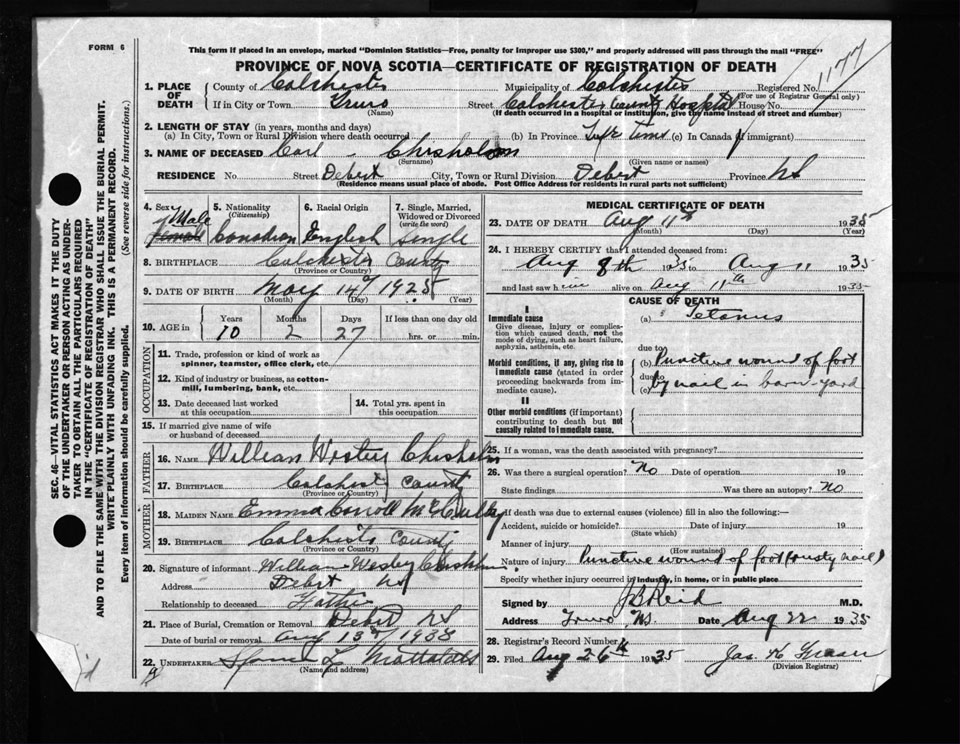 FORM 6
This form if placed in an envelope, marked "Dominion Statistics—Free, penalty for improper use $300," and properly addressed will pass through the mail "FREE"
PROVINCE OF NOVA SCOTIA—CERTIFICATE OF REGISTRATION OF DEATH
1177
SEC. 46—VITAL STATISTICS ACT MAKES IT THE DUTY
OF THE UNDERTAKER OR PERSON ACTING AS UNDER-
TAKER TO OBTAIN ALL THE PARTICULARS REQUIRED
IN THE "CERTIFICATE OF REGISTRATION OF DEATH"
AND TO FILE THE SAME WITH THE DIVISION REGISTRAR WHO SHALL ISSUE THE BURIAL PERMIT.
WRITE PLAINLY WITH UNFADING INK. THIS IS A PERMANENT RECORD.
Every item of information should be carefully supplied. (See reverse side for instructions.)
1. PLACE OF DEATH
County of Colchester Municipality of Colchester Registered No.
(For use of Registrar General only)
If in City or Town Truro Street Colchester County Hospital House No.
(Name) (If death occurred in a hospital or institution, give the name instead of street and number)
2. LENGTH OF STAY (in years, months and days)
(a) In City, Town or Rural Division where death occurred (b) In Province Life time (c) In Canada (if immigrant)
3. NAME OF DECEASED Carl - Chisholm
(Surname) (Given name or names)
RESIDENCE No. Street Debert City, Town or Rural Division Debert Province NS
(Residence means usual place of abode. Post Office Address for residents in rural parts not sufficient)
4. Sex 5. Nationality 6. Racial Origin 7. Single, Married,
(Citizenship) Widowed or Divorced
(write the word)
Male
Female Canadian English Single
8. BIRTHPLACE Colchester County
(Province or Country)
9. DATE OF BIRTH May 14th 1925
(Month) (Day) (Year)
10. AGE in Years Months Days If less than one day old
10 2 27 hrs. or min.
OCCUPATION
11. Trade, profession or kind of work as
spinner, teamster, office clerk, etc.
12. Kind of industry or business, as cotton-
mill, lumbering, bank, etc.
13. Date deceased last worked
at this occupation
14. Total yrs. spent in
this occupation
15. If married give name of wife
or husband of deceased
FATHER
16. NAME William Wesley Chisholm
17. BIRTHPLACE Colchester County
(Province or Country)
MOTHER
18. MAIDEN NAME Emma Carroll McCully
19. BIRTHPLACE Colchester County
(Province or Country)
20. Signature of informant William Wesley Chisholm
Address Debert NS
Relationship to deceased Father
21. Place of Burial, Cremation or Removal Debert NS
Date of burial or removal Aug 13th 1935
22. UNDERTAKER
(Name and address)
MEDICAL CERTIFICATE OF DEATH
23. DATE OF DEATH Aug 11th 1935
(Month) (Day) (Year)
24. I HEREBY CERTIFY that I attended deceased from:
Aug 8th 1935 to Aug 11 1935
and last saw him alive on Aug 11th 1935
CAUSE OF DEATH
I
Immediate cause
Give disease, injury or complica-
tion which caused death, not the
mode of dying, such as heart failure,
asphyxia, asthenia, etc.
(a) Tetanus
due to
Morbid conditions, if any, giving rise to
immediate cause (stated in order
proceeding backwards from im-
mediate cause).
(b) Punctive wound of foot
due to
(c) by nail in barn-yard
II
Other morbid conditions (if important)
contributing to death but not
causally related to immediate cause.
25. If a woman, was the death associated with pregnancy?
26. Was there a surgical operation? No Date of operation 19
State findings Was there an autopsy? No
27. If death was due to external causes (violence) fill in also the following:—
Accident, suicide or homicide? Date of injury 19
(State which)
Manner of injury
(How sustained)
Nature of injury Punctive wound of foot (rusty nail)
Specify whether injury occurred in industry, in home, or in public place
Signed by J B Reid M.D.
Address Truro NS. Date Aug 22 1935
28. Registrar's Record Number
29. Filed Aug 26th 1935
(Division Registrar)